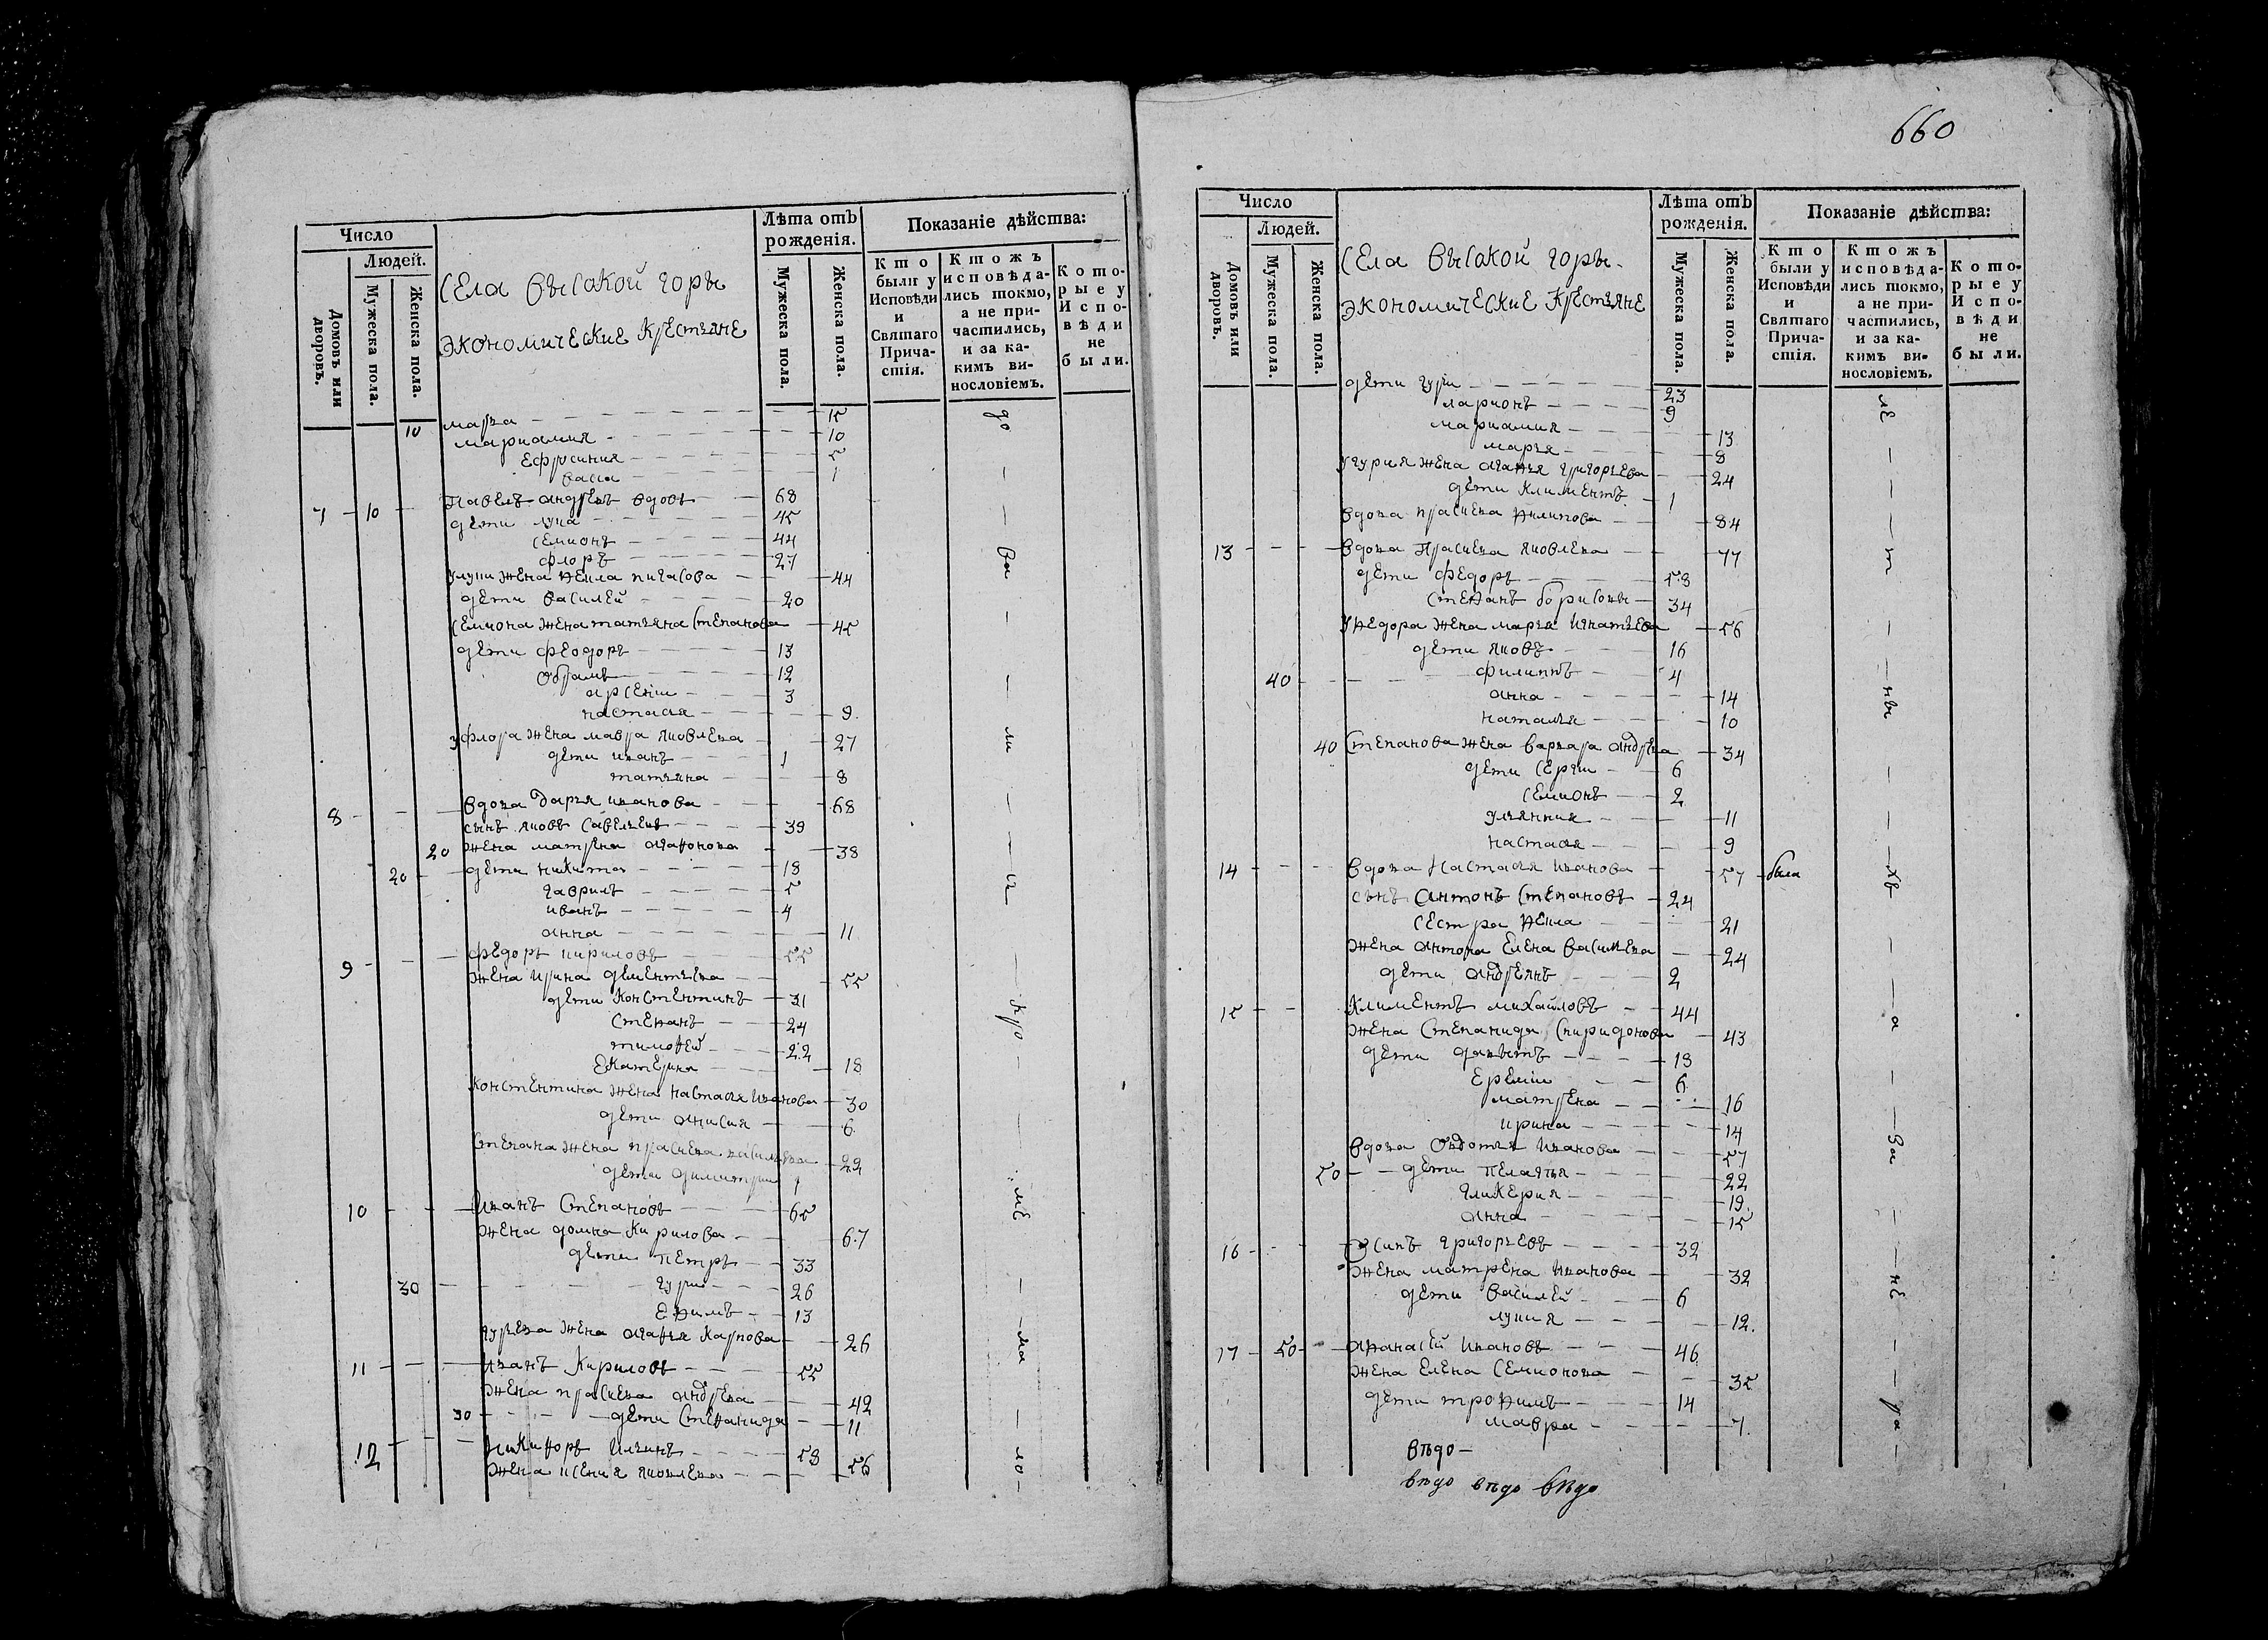 660
Число
Людей.
Домовъ или дворовъ.
Мужеска пола.
Женска пола.
Села высакой горы
экономические крестьяне
Лѣта отъ рожденія.
Мужеска пола.
Женска пола.
Показаніе дѣйства:
Кто были у Исповѣди и Святаго Причастія.
Ктожъ исповѣдались токмо, а не причастились, и за какимъ винословіемъ.
Которые у Исповѣди не были.
10 марѳа 15
мариамия 10
Ефросиния 5
васса 1
7 10 Павелъ андреевъ вдовъ 68
дети лука 45
Семионъ 44
флоръ 27
улуки жена Ѳекла пигасова 44
дети василей 20
Семиона жена татьяна Степанова 45
дети феодоръ 13
абрамъ 12
арсении 3
настасья 9
уфлора жена мавра яковлева 27
дети иванъ 1
татьяна 8
8 вдова дарья иванова 68
сынъ яковъ Савельевъ 39
20 жена матрена агаѳонова 38
20 дети никита 18
гаврилъ 5
иванъ 4
анна 11
9 федоръ кириловъ 55
жена ирина дементьева 55
дети константинъ 31
Степанъ 24
тимоѳей 22
Екатерина 18
константина жена настасья Иванова 30
дети анисия 6
Степана жена прасковья васильева 22
дети димитрии 1
10 Иванъ Степановъ 65
жена домна Кирилова 67
дети петръ 33
30 гурии 26
Еѳимъ 13
гурьева жена агаѳья Карпова 26
11 Иванъ Кириловъ 55
жена прасковья андреева 42
30 дети Степанида 11
12 никиѳоръ Ильинъ 58
жена ксения яковлева 56
до
ва
ли
съ
кро
ме
ма
ло
Число
Людей.
Домовъ или дворовъ.
Мужеска пола.
Женска пола.
Села высакой горы.
экономические крестьяне
Лѣта отъ рожденія.
Мужеска пола.
Женска пола.
Показаніе дѣйства:
Кто были у Исповѣди и Святаго Причастія.
Ктожъ исповѣдались токмо, а не причастились, и за какимъ винословіемъ.
Которые у Исповѣди не были.
дети гурии 23
ларионъ 9
мариамия 13
марья 8
угурия жена агаѳья григорьева 24
дети климентъ 1
вдова прасковья Ѳилипова 84
13 вдова Прасковья яковлева 77
дети федоръ 58
Стеѳанъ борисовы 34
уѲедора жена марья игнатьева 56
дети яковъ 16
40 филиппъ 4
анна 14
наталья 10
40 Степанова жена варвара андреева 34
дети Сергии 6
Семионъ 2
ульянния 11
настасья 9
14 вдова Настасья иванова 57 была
сынъ антонъ Степановъ 24
Сестра Ѳекла 21
жена антона Елена васильева 24
дети андреянъ 2
15 Климентъ михайловъ 44
жена Степанида Спиридонова 43
дети давыдъ 18
Еремии 6
матрена 16
ирина 14
вдова Овдотья Иванова 57
50 дети Пелагея 22
гликерия 19
анна 15
16 Осипъ григорьевъ 32
жена матрена Иванова 32
дети василей 6
лукия 12
17 50 аѳанасей Ивановъ 46
жена Елена Семионова 35
дети троѳимъ 14
мавра 7
ле
т
ны
хъ
а
за
не
ра
вѣдо
вѣдо вѣдо вѣдо